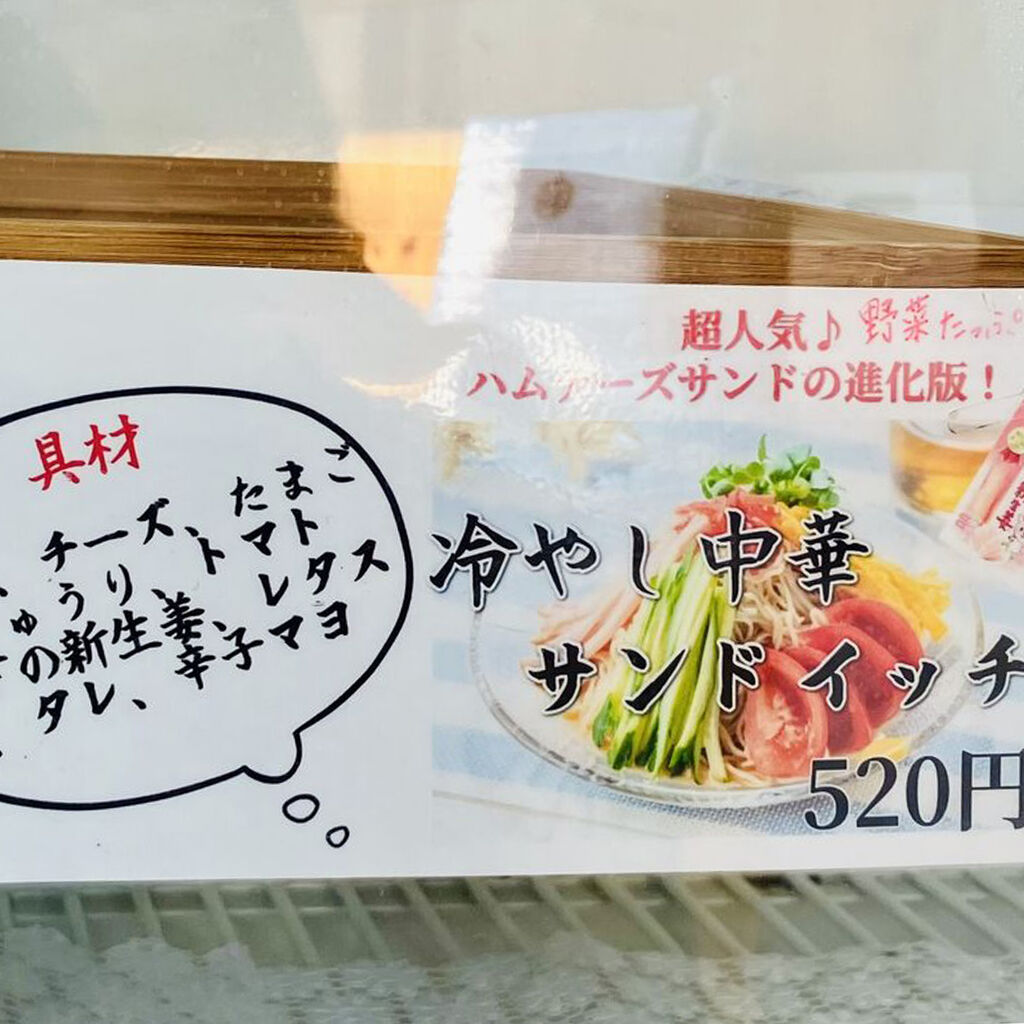 具材
、チーズ、たまご
ゅうり、トマト
の新生姜、レタス
タレ、辛子マヨ
超人気♪ 野菜たっぷ
ハムチーズサンドの進化版！
冷やし中華
サンドイッチ
520円